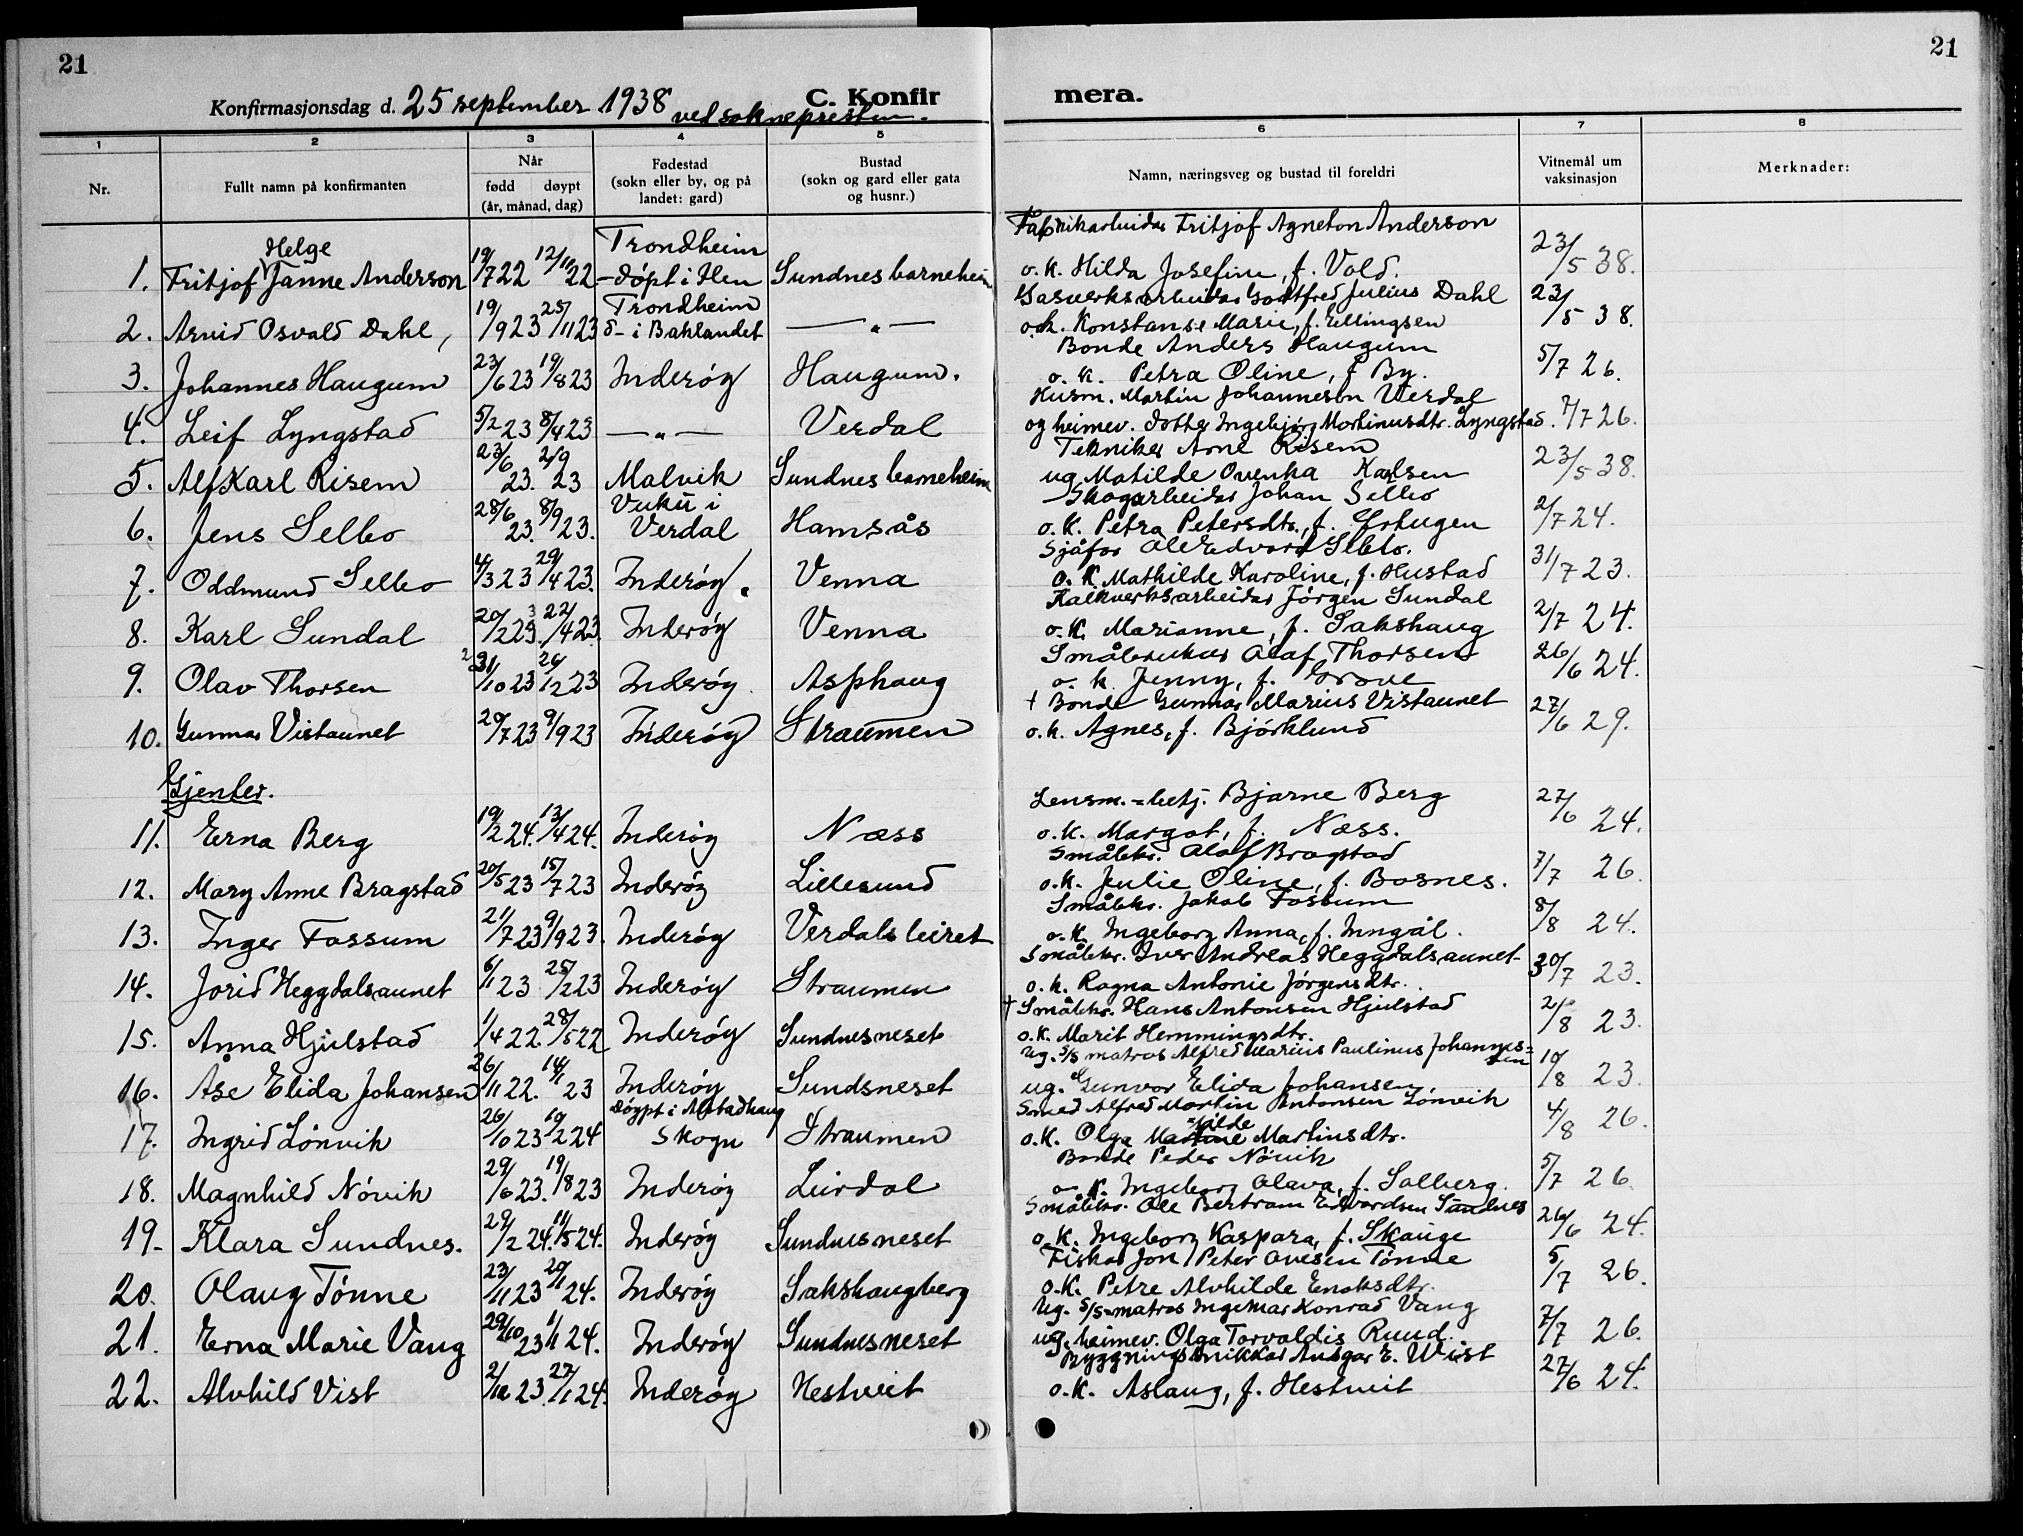 21
21
Konfirmasjonsdag d. 25 september 1938 ved soknepresten.
C. Konfirmera.
1 2 3 4 5 6 7 8
Nr.
Fullt namn på konfirmanten
Når
fødd døypt
(år, månad, dag)
Fødestad
(sokn eller by, og på
landet: gard)
Bustad
(sokn og gard eller gata
og husnr.)
Namn, næringsveg og bustad til foreldri
Vitnemål um
vaksinasjon
Merknader:
Helge
Trondheim
Fabrikarbeider Fritjof Agneton Anderson
1. Fritjof Janne Anderson 19/7 22 12/11 22 - døpt i Ilen Sundnes barneheim o. k. Hilda Josefine, f. Vold. 23/5 38.
Trondheim
Gasverksarbeider Godtfred Julius Dahl
2. Arvid Osvald Dahl, 19/9 23 25/11 23 d- i Baklandet —„— o. k. Konstanse Marie, f. Ellingsen 23/5 38.
Bonde Anders Haugum
3. Johannes Haugum 23/6 23 19/8 23 Inderøy Haugum. o. k. Petra Oline, f By. 5/7 26.
Husm. Martin Johannesen Verdal
4. Leif Lyngstad 5/2 23 8/4 23 —„— Verdal og heimev. dotter Ingebjørg Martinusdtr. Lyngstad. 7/7 26.
Tekniker Arne Risem
5. Alf Karl Risem 23/6 23. 2/9 23 Malvik Sundnes barneheim ug Matilde Ovenka Karlsen 23/5 38.
Vuku i
Skogsarbeider Johan Selbo
6. Jens Selbo 28/6 23. 8/9 23. Verdal Hamsås o. k. Petra Petersdtr., f. Ertugen 2/7 24.
Sjåfør Ole Edvard Selbo.
7. Oddmund Selbo 4/3 23 29/4 23. Inderøy. Venna o. k. Mathilde Karoline, f. Hustad 31/7 23.
Kalkverksarbeider Jørgen Sundal
8. Karl Sundal 20/2 23. 22/4 23. Inderøy Venna o. k. Marianne, f. Sakshaug 2/7 24.
Småbruker Olaf Thorsen
9. Olav Thorsen 21/10 23 26/12 23 Inderøy Asphaug o. k. Jenny, f. Grove 26/6 24.
† Bonde Gunnar Marius Vistaunet
10. Gunnar Vistaunet 20/7 23 9/9 23 Inderøy Straumen o. k. Agnes, f. Bjørklund 27/6 29.
Gjenter.
Lensm.=betj. Bjarne Berg
11. Erna Berg 19/2 24. 13/4 24. Inderøy Næss o. k. Margot, f. Næss. 27/6 24.
Småbkr. Olaf Bragstad
12. Mary Anne Bragstad 20/5 23 15/7 23 Inderøy Lillesund o. k. Julie Oline, f. Bosnes. 7/7 26.
Småbkr. Jakob Fossum
13. Inger Fossum 21/7 23 9/9 23. Inderøy Verdalsleiret o. k. Ingeborg Anna, f. Inngål. 8/8 24.
Småbkr. Iver Andreas Heggdalsaunet
14. Jorid Heggdalsaunet 6/1 23 25/2 23 Inderøy Straumen o. k. Ragna Antonie Jørgensdtr. 30/7 23.
† Småbkr. Hans Antonsen Hjulstad
15. Anna Hjulstad 1/4 22. 28/5 22 Inderøy Sundnesneset o. k. Marit Hemmingsdtr. 2/8 23.
Ug. s/s matros Alfred Marius Paulinus Johannes=sen
16. Åse Elida Johansen 26/11 22. 14/1 23 Inderøy Sundsneset ug. Gunvor Elida Johansen. 10/8 23.
døypt i Alstadhaug
Smed Alfred Martin Antonsen Lønvik
17. Ingrid Lønvik 26/10 23 10/2 24 Skogn Straumen o. k. Olga Matilde Martinsdtr. 4/8 26.
Bonde Peder Nøvik
18. Magnhild Nøvik 29/6 23. 19/8 23 Inderøy Leirdal o. k. Ingeborg Olava, f. Salberg. 5/7 26
Småbkr. Ole Bertram Edvardsen Sundnes
19. Klara Sundnes. 29/2 24. 11/5 24. Inderøy Sundnesneset o. k. Ingeborg Kaspara, f. Skauge 26/6 24.
Fisker Jon Peter Ovesen Tønne
20. Olaug Tønne 23/11 23 20/1 24. Inderøy Sakshaugberg o. k. Petre Alvhilde Enoksdtr. 5/7 26.
Ug. s/s=matros Ingemar Konrad Vang
21. Erna Marie Vang 29/10 23 1/1 24. Inderøy Sundnesneset ug. heimev. Olga Torvaldis Ruud. 7/7 26.
Byggningssnikkar Ansgar E. Wist
22. Alvhild Vist 2/12 23. 27/1 24. Inderøy Hestveit o. k. Aslaug, f. Hestveit 27/6 24.